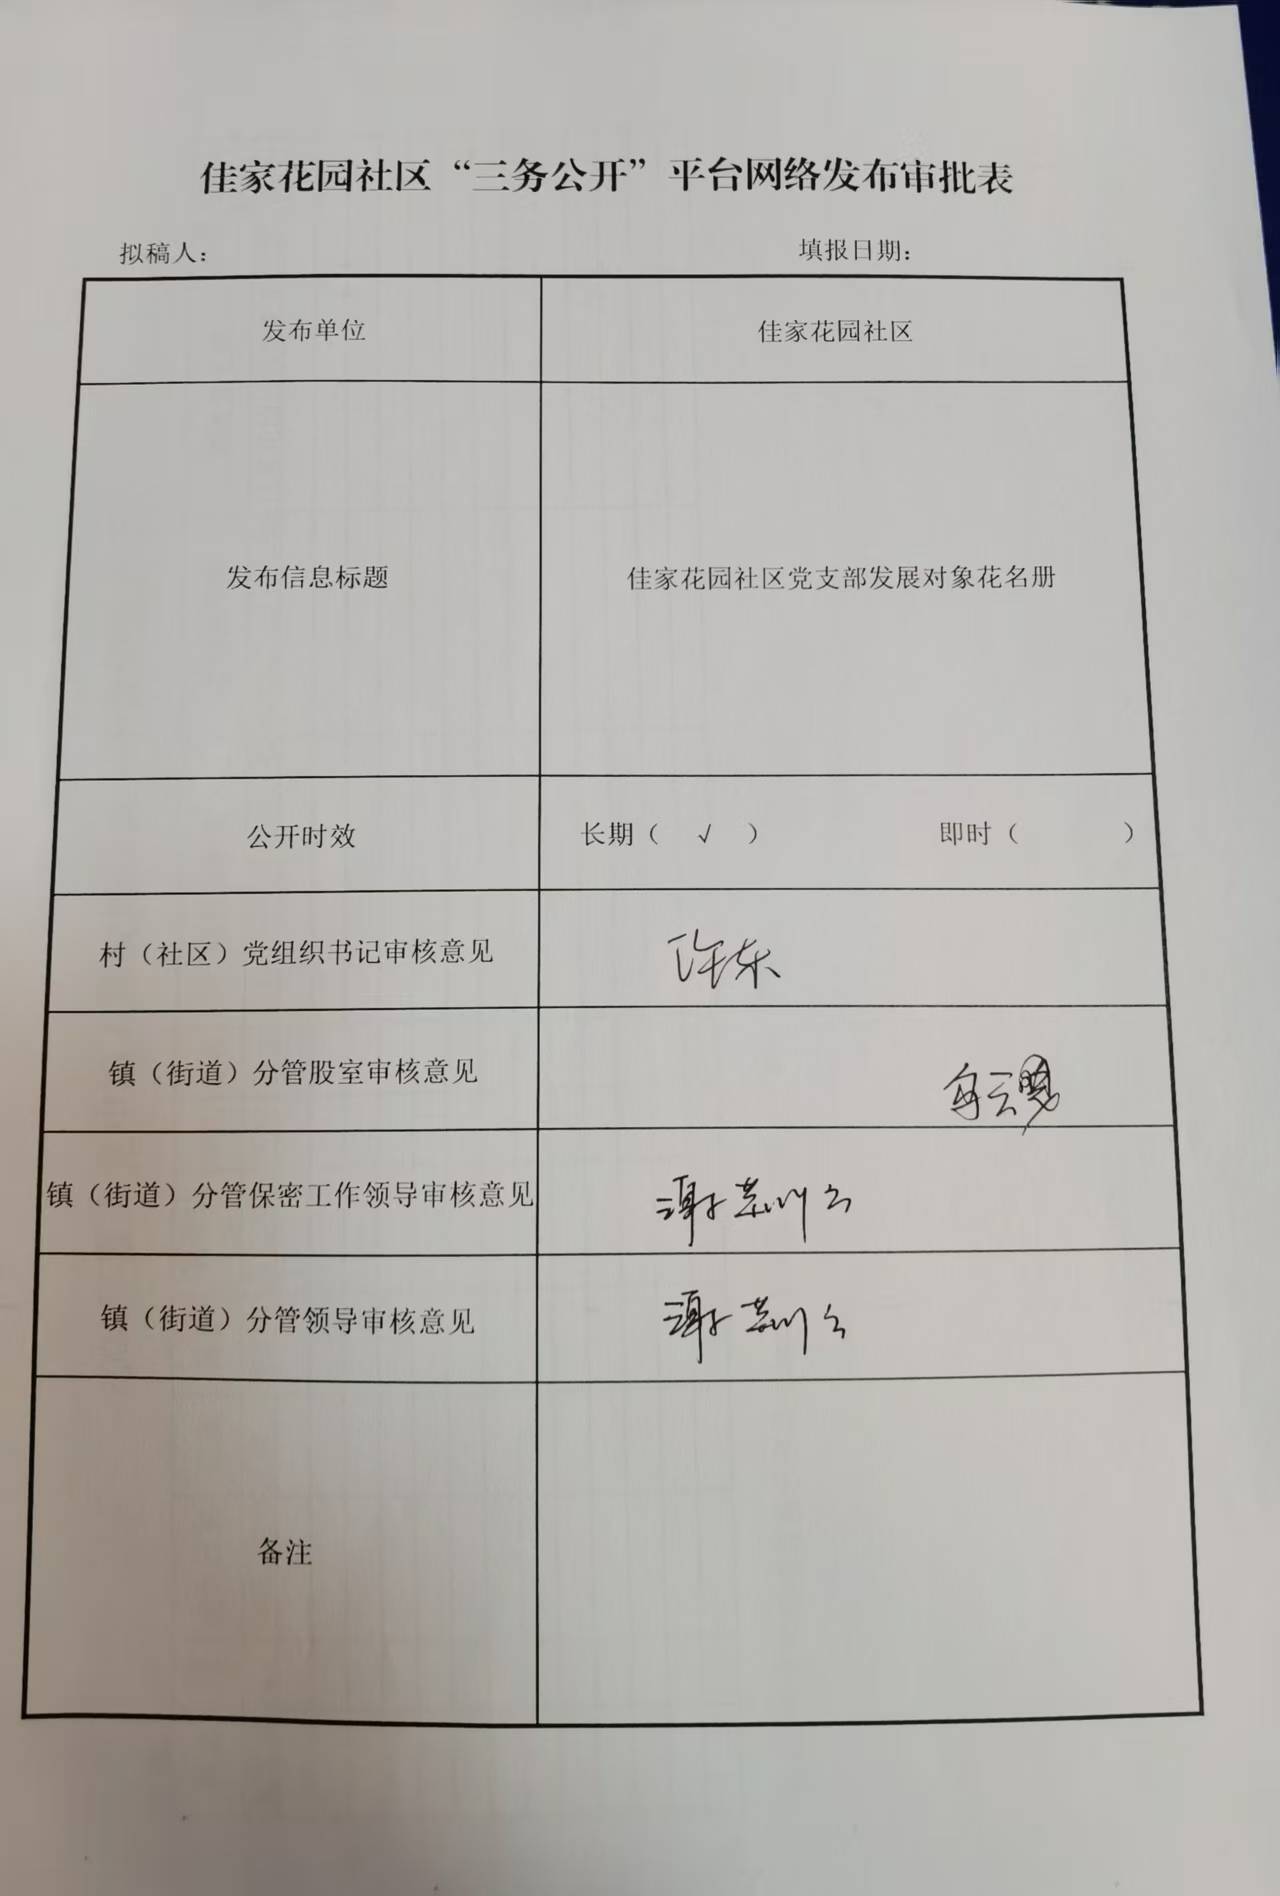 佳家花园社区“三务公开”平台网络发布审批表
拟稿人： 填报日期：
发布单位 佳家花园社区
发布信息标题 佳家花园社区党支部发展对象花名册
公开时效 长期（ √ ） 即时（ ）
村（社区）党组织书记审核意见 许东
镇（街道）分管股室审核意见
镇（街道）分管保密工作领导审核意见 谢
镇（街道）分管领导审核意见 谢
备注